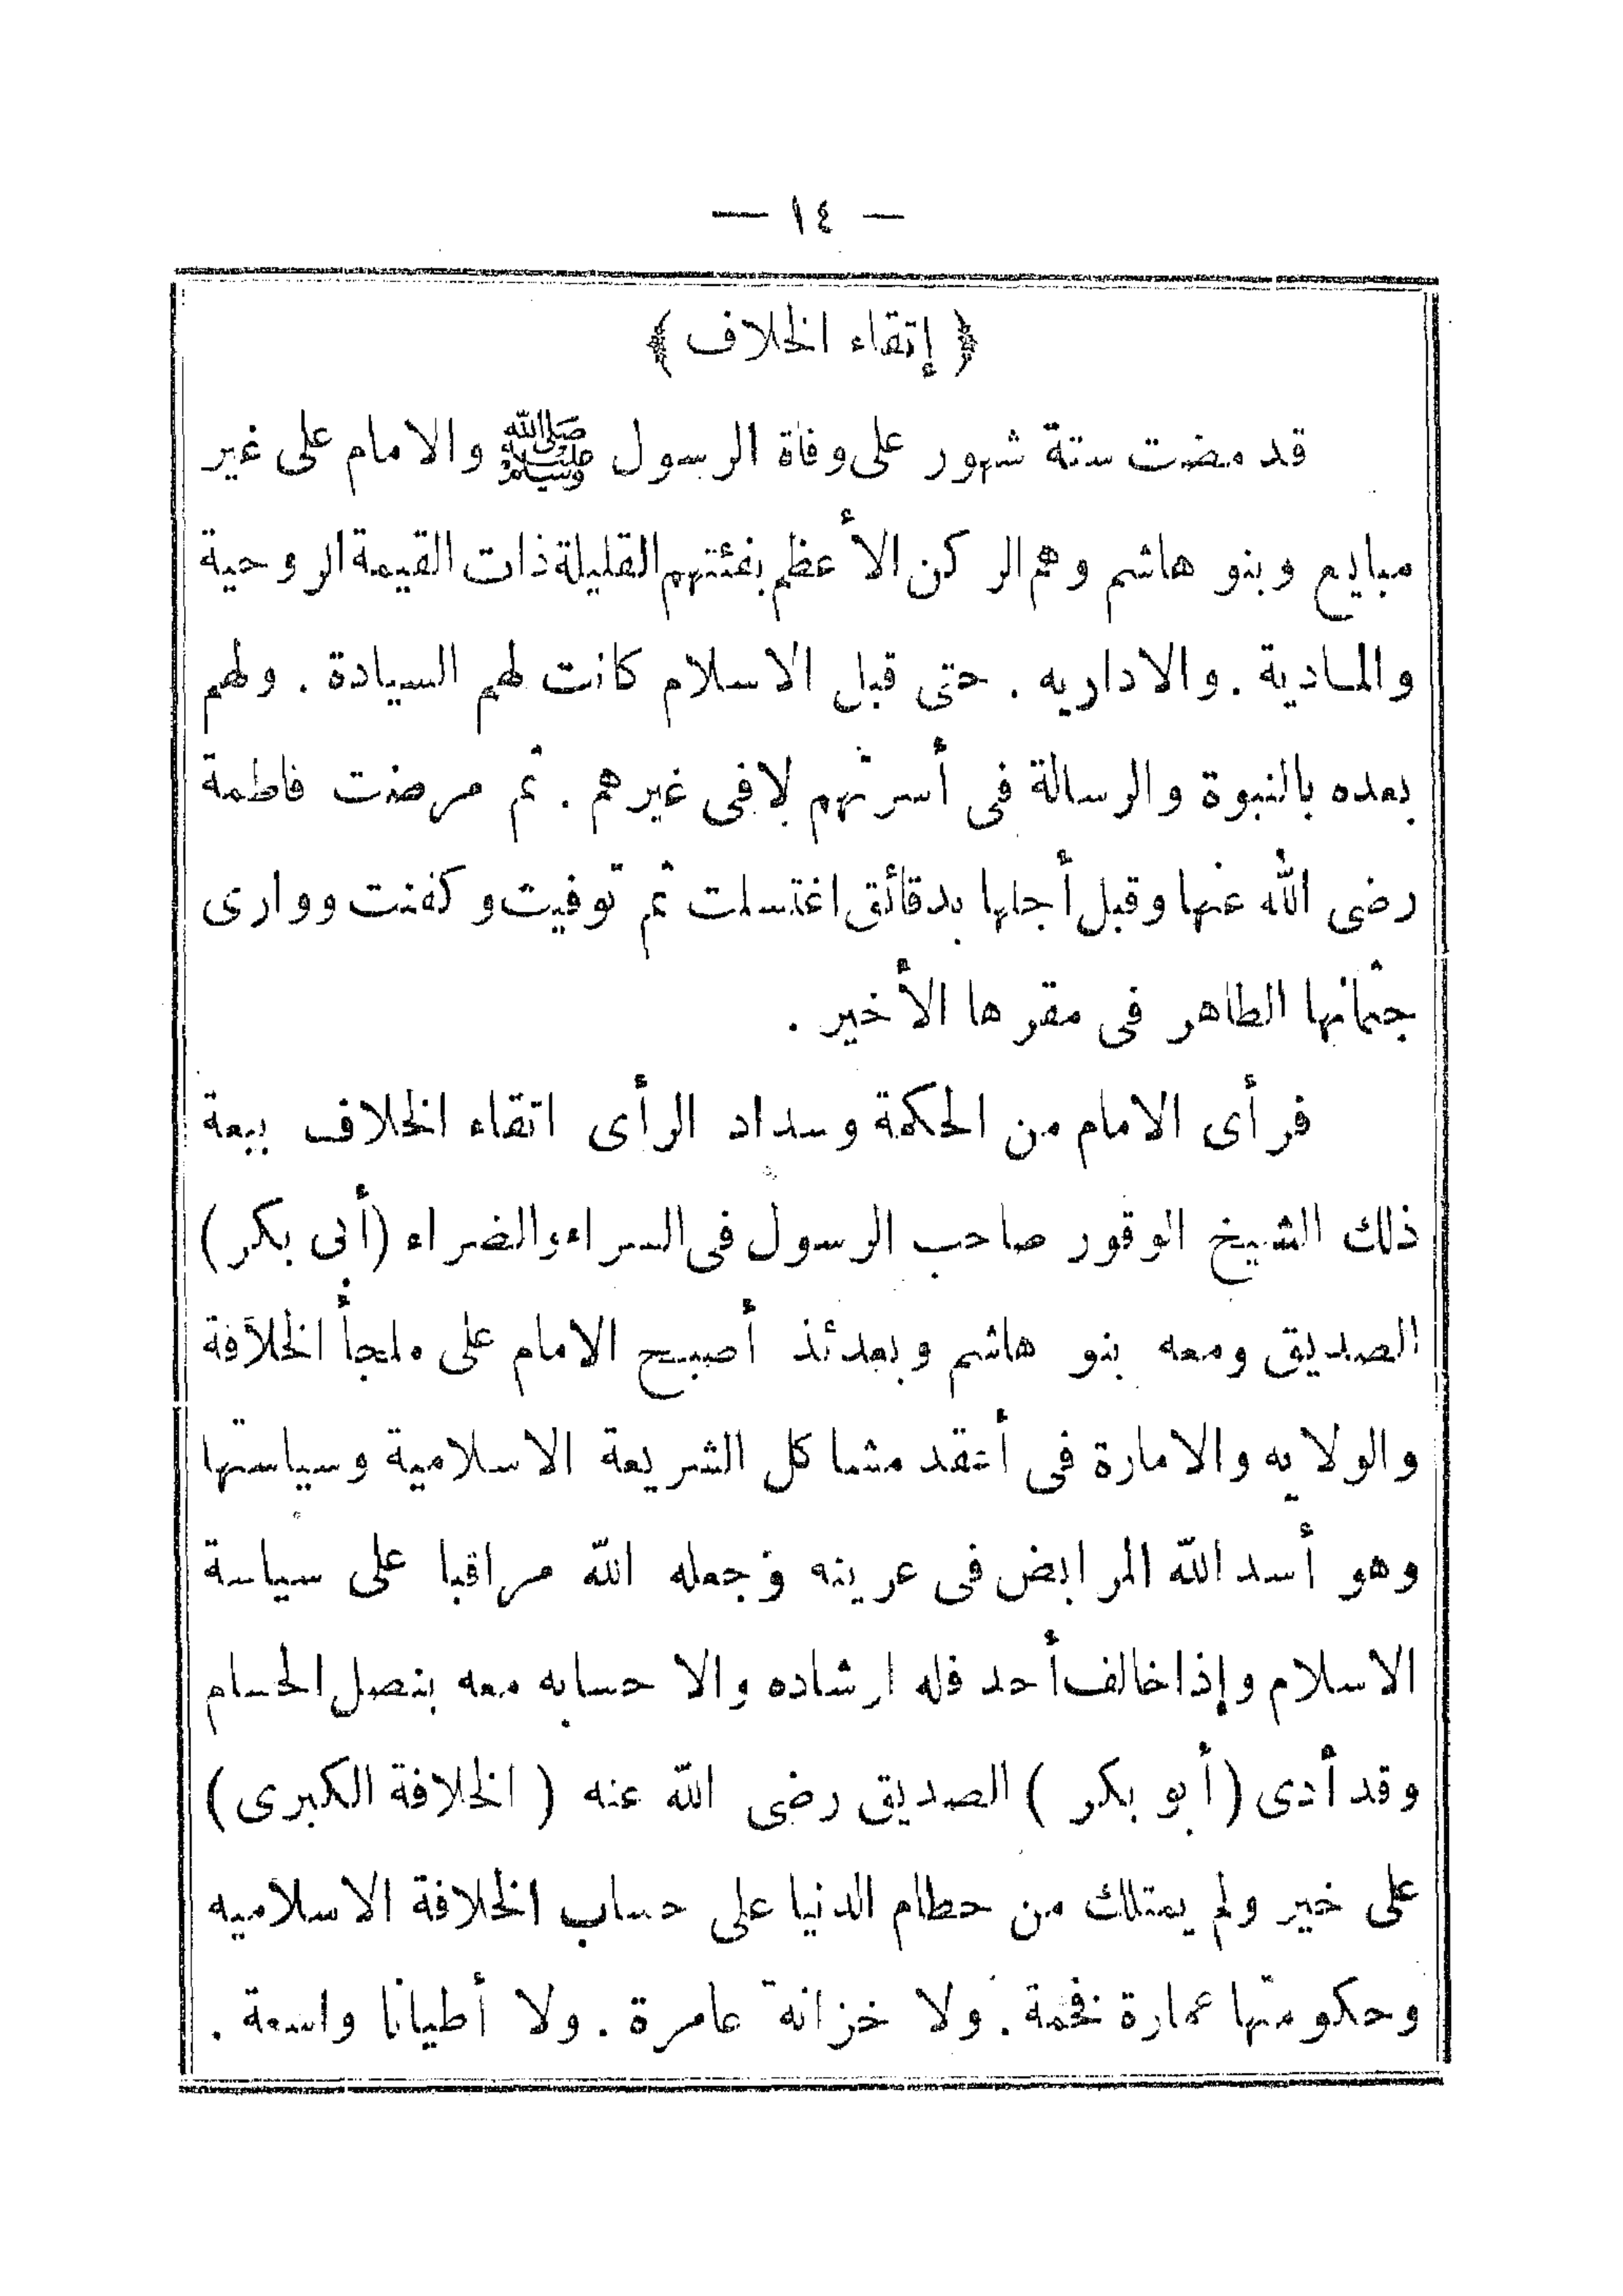 — ١٤ —
﴿ إتقاء الخلاف ﴾
قد مضت ستة شهور على وفاة الرسول ﷺ والامام على غير
مبايع وبنو هاشم وهم الركن الأعظم بفئتهم القليلة ذات القيمة الروحية
والمادية . والاداريه . حتى قبل الاسلام كانت لهم السيادة . ولهم
بعده بالنبوة والرسالة فى أسرتهم لافى غيرهم . ثم مرضت فاطمة
رضى الله عنها وقبل أجلها بدقائق اغتسلت ثم توفيت وكفنت ووارى
جثمانها الطاهر فى مقرها الأخير .
فرأى الامام من الحكمة وسداد الرأى اتقاء الخلاف بيعة
ذلك الشيخ الوقور صاحب الرسول فى السراء والضراء (أبى بكر)
الصديق ومعه بنو هاشم وبعدئذ أصبح الامام على ملجأ الخلافة
والولايه والامارة فى أعقد مشاكل الشريعة الاسلامية وسياستها
وهو أسد الله المرابض فى عرينه وجعله الله مراقبا على سياسة
الاسلام وإذا خالف أحد فله ارشاده والا حسابه معه بنصل الحسام
وقد أدى (أبو بكر) الصديق رضى الله عنه (الخلافة الكبرى)
على خير ولم يمتلك من حطام الدنيا على حساب الخلافة الاسلاميه
وحكومتها عمارة فخمة . ولا خزانة عامرة . ولا أطيانا واسعة .